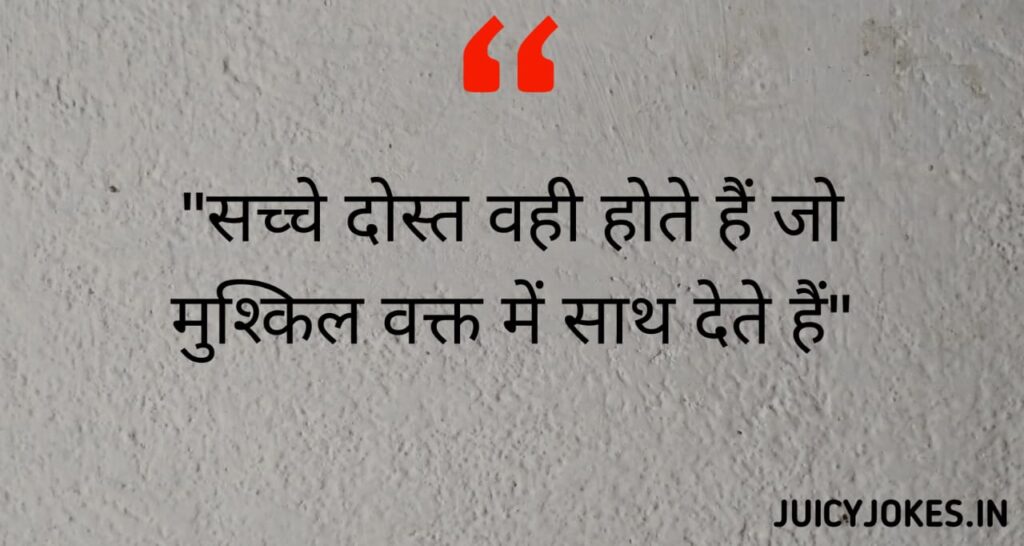 "सच्चे दोस्त वही होते हैं जो
मुश्किल वक्त में साथ देते हैं"
JUICYJOKES.IN